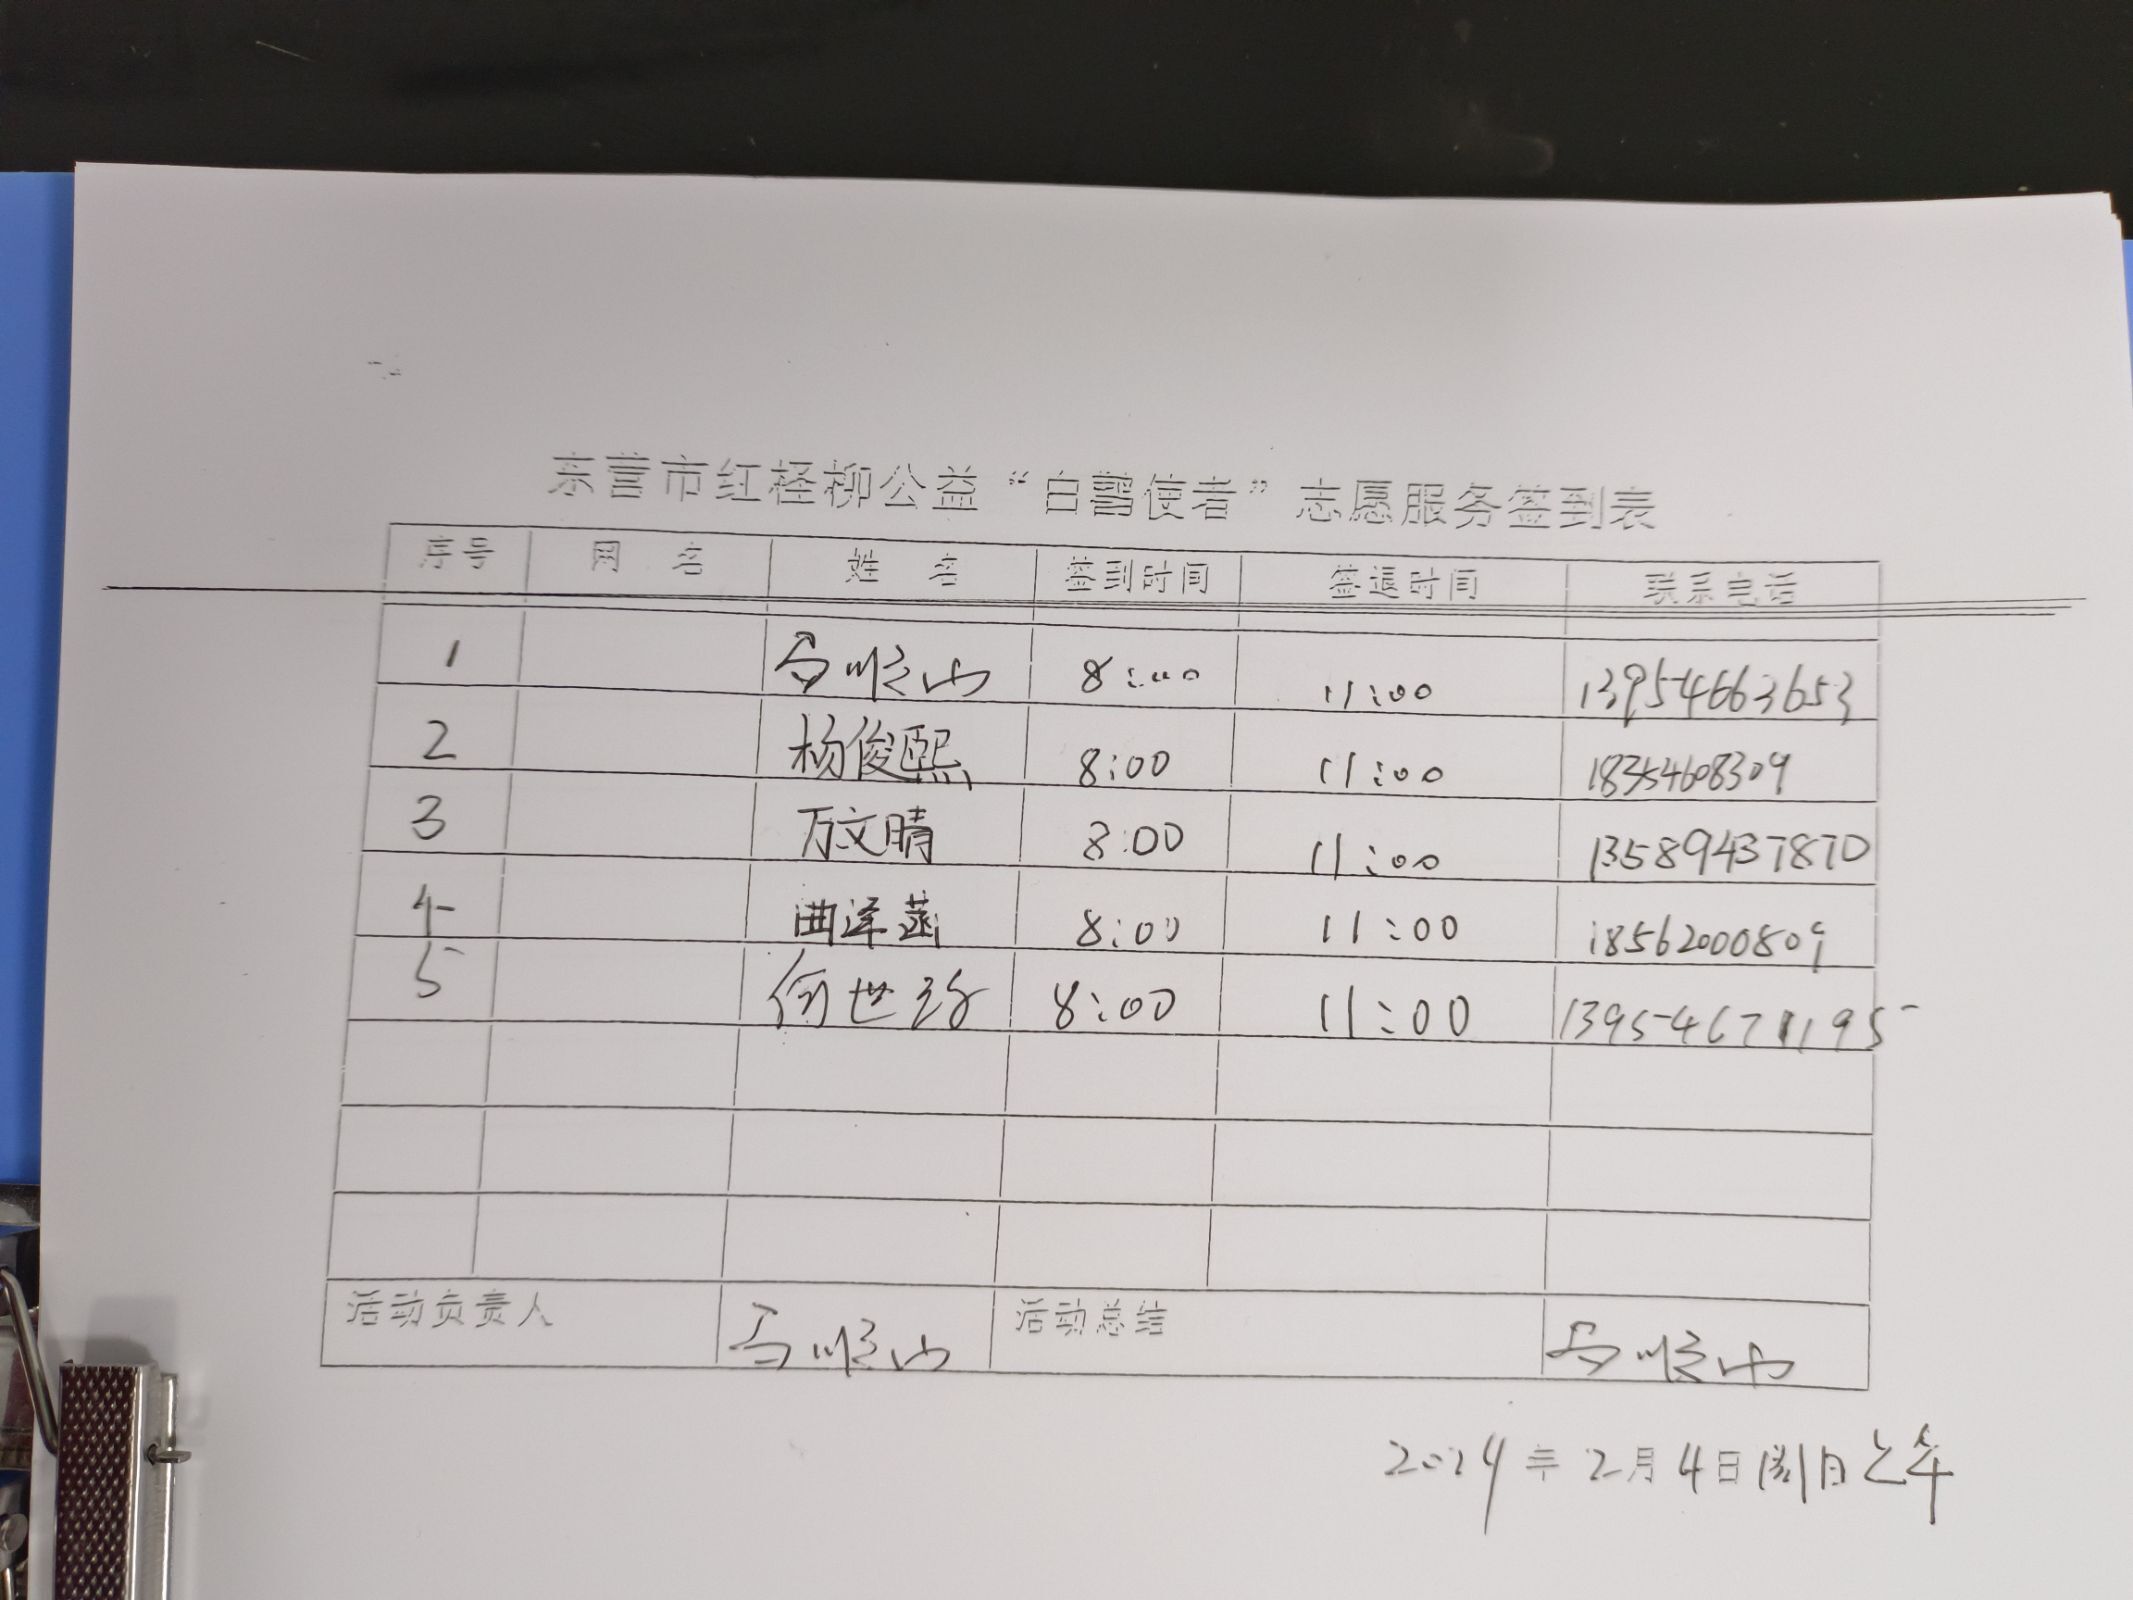 东营市红柽柳公益“白鹭使者”志愿服务签到表
序号 网 名 姓 名 签到时间 签退时间 联系电话
1 马顺山 8:00 11:00 13954663653
2 杨俊熙 8:00 11:00 18354608309
3 万文晴 8:00 11:00 13589437870
4 曲泽菡 8:00 11:00 18562000809
5 何世 8:00 11:00 13954671195
活动负责人 马顺山 活动总结 马顺山
2024年2月4日周日上午